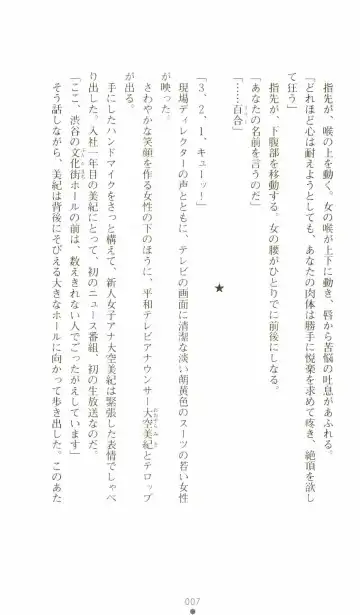 指先が、喉の上を動く。女の喉が上下に動き、唇から苦悩の吐息があふれる。
『どれほど心は耐えようとしても、あなたの肉体は勝手に悦楽を求めて疼き、絶頂を欲し
て狂う』
指先が、下腹部を移動する。女の腰がひとりでに前後にしなる。
『あなたの名前を言うのだ』
「……百合」
★
「3、2、1、キューッ！」
現場ディレクターの声とともに、テレビの画面に清潔な淡い萌黄色のスーツの若い女性
が映った。
さわやかな笑顔を作る女性の下のほうに、平和テレビアナウンサー大空美紀とテロップ
が出る。
手にしたハンドマイクをさっと構えて、新人女子アナ大空美紀は緊張した表情でしゃべ
り出した。入社一年目の美紀にとって、初のニュース番組、初の生放送なのだ。
「ここ、渋谷の文化街ホールの前は、数えきれない人でごったがえしています」
そう話しながら、美紀は背後にそびえる大きなホールに向かって歩き出した。このあた
007